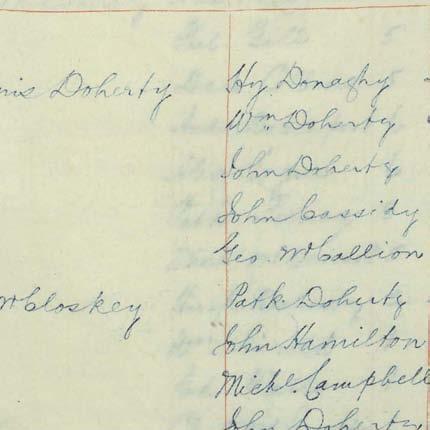 Doherty Hy. Donaghy
Wm. Doherty
John Doherty
John Cassidy
Geo. McCallion
McCloskey Patk. Doherty
John Hamilton
Michl. Campbell
John Doherty